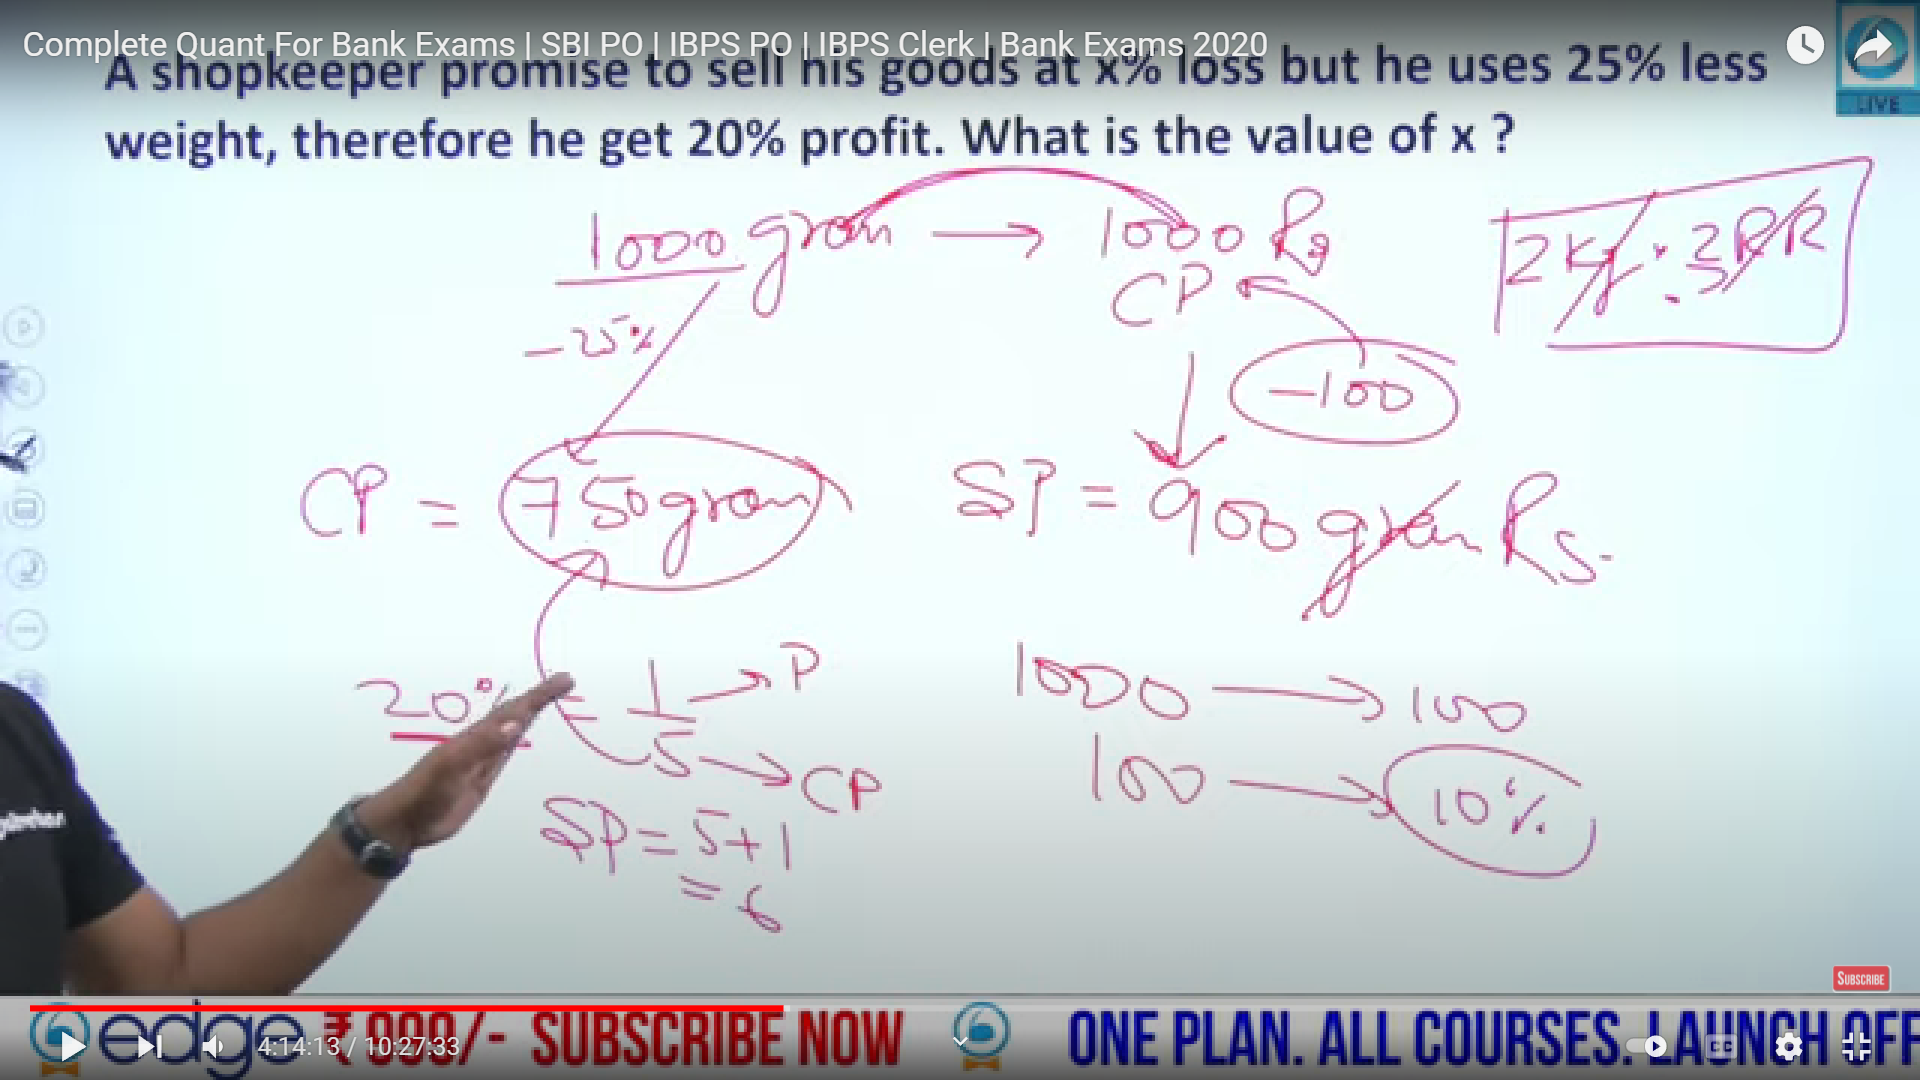 Complete Quant For Bank Exams | SBI PO | IBPS PO | IBPS Clerk | Bank Exams 2020
A shopkeeper promise to sell his goods at x% loss but he uses 25% less
weight, therefore he get 20% profit. What is the value of x ?
LIVE
1000 gram → 1000 Rs
CP
2Kg . 3RR
-25%
-100
CP = 750gram
SP = 900 gram Rs.
20% = 1/5
1 → P
5 → CP
SP = 5+1
= 6
1000 → 100
100 → 10%
SUBSCRIBE
edge ₹ 999/- SUBSCRIBE NOW
ONE PLAN. ALL COURSES. LAUNCH OFF
4:14:13 / 10:27:33
CC